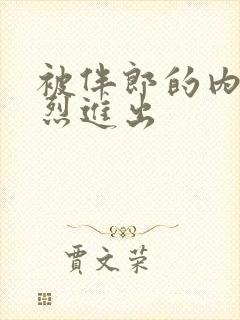 被伴郎的内
烈进出
贾文荣